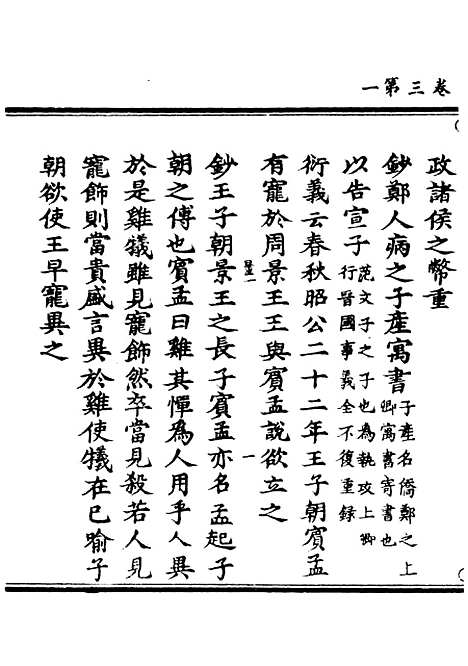 卷三第一
政諸侯之幣重
鈔鄭人病之子產寓書子產名僑鄭之上卿寓書寄書也
以告宣子范文子之子也為執政上卿行晉國事義全不復重録
衍義云春秋昭公二十二年王子朝賓孟
有寵於周景王王與賓孟說欲立之
鈔王子朝景王之長子賓孟亦名孟起子
朝之傅也賓孟曰雞其憚為人用乎人異
於是雞犧雖見寵飾然卒當見殺若人見
寵飾則當貴盛言異於雞使犧在已喻子
朝欲使王早寵異之